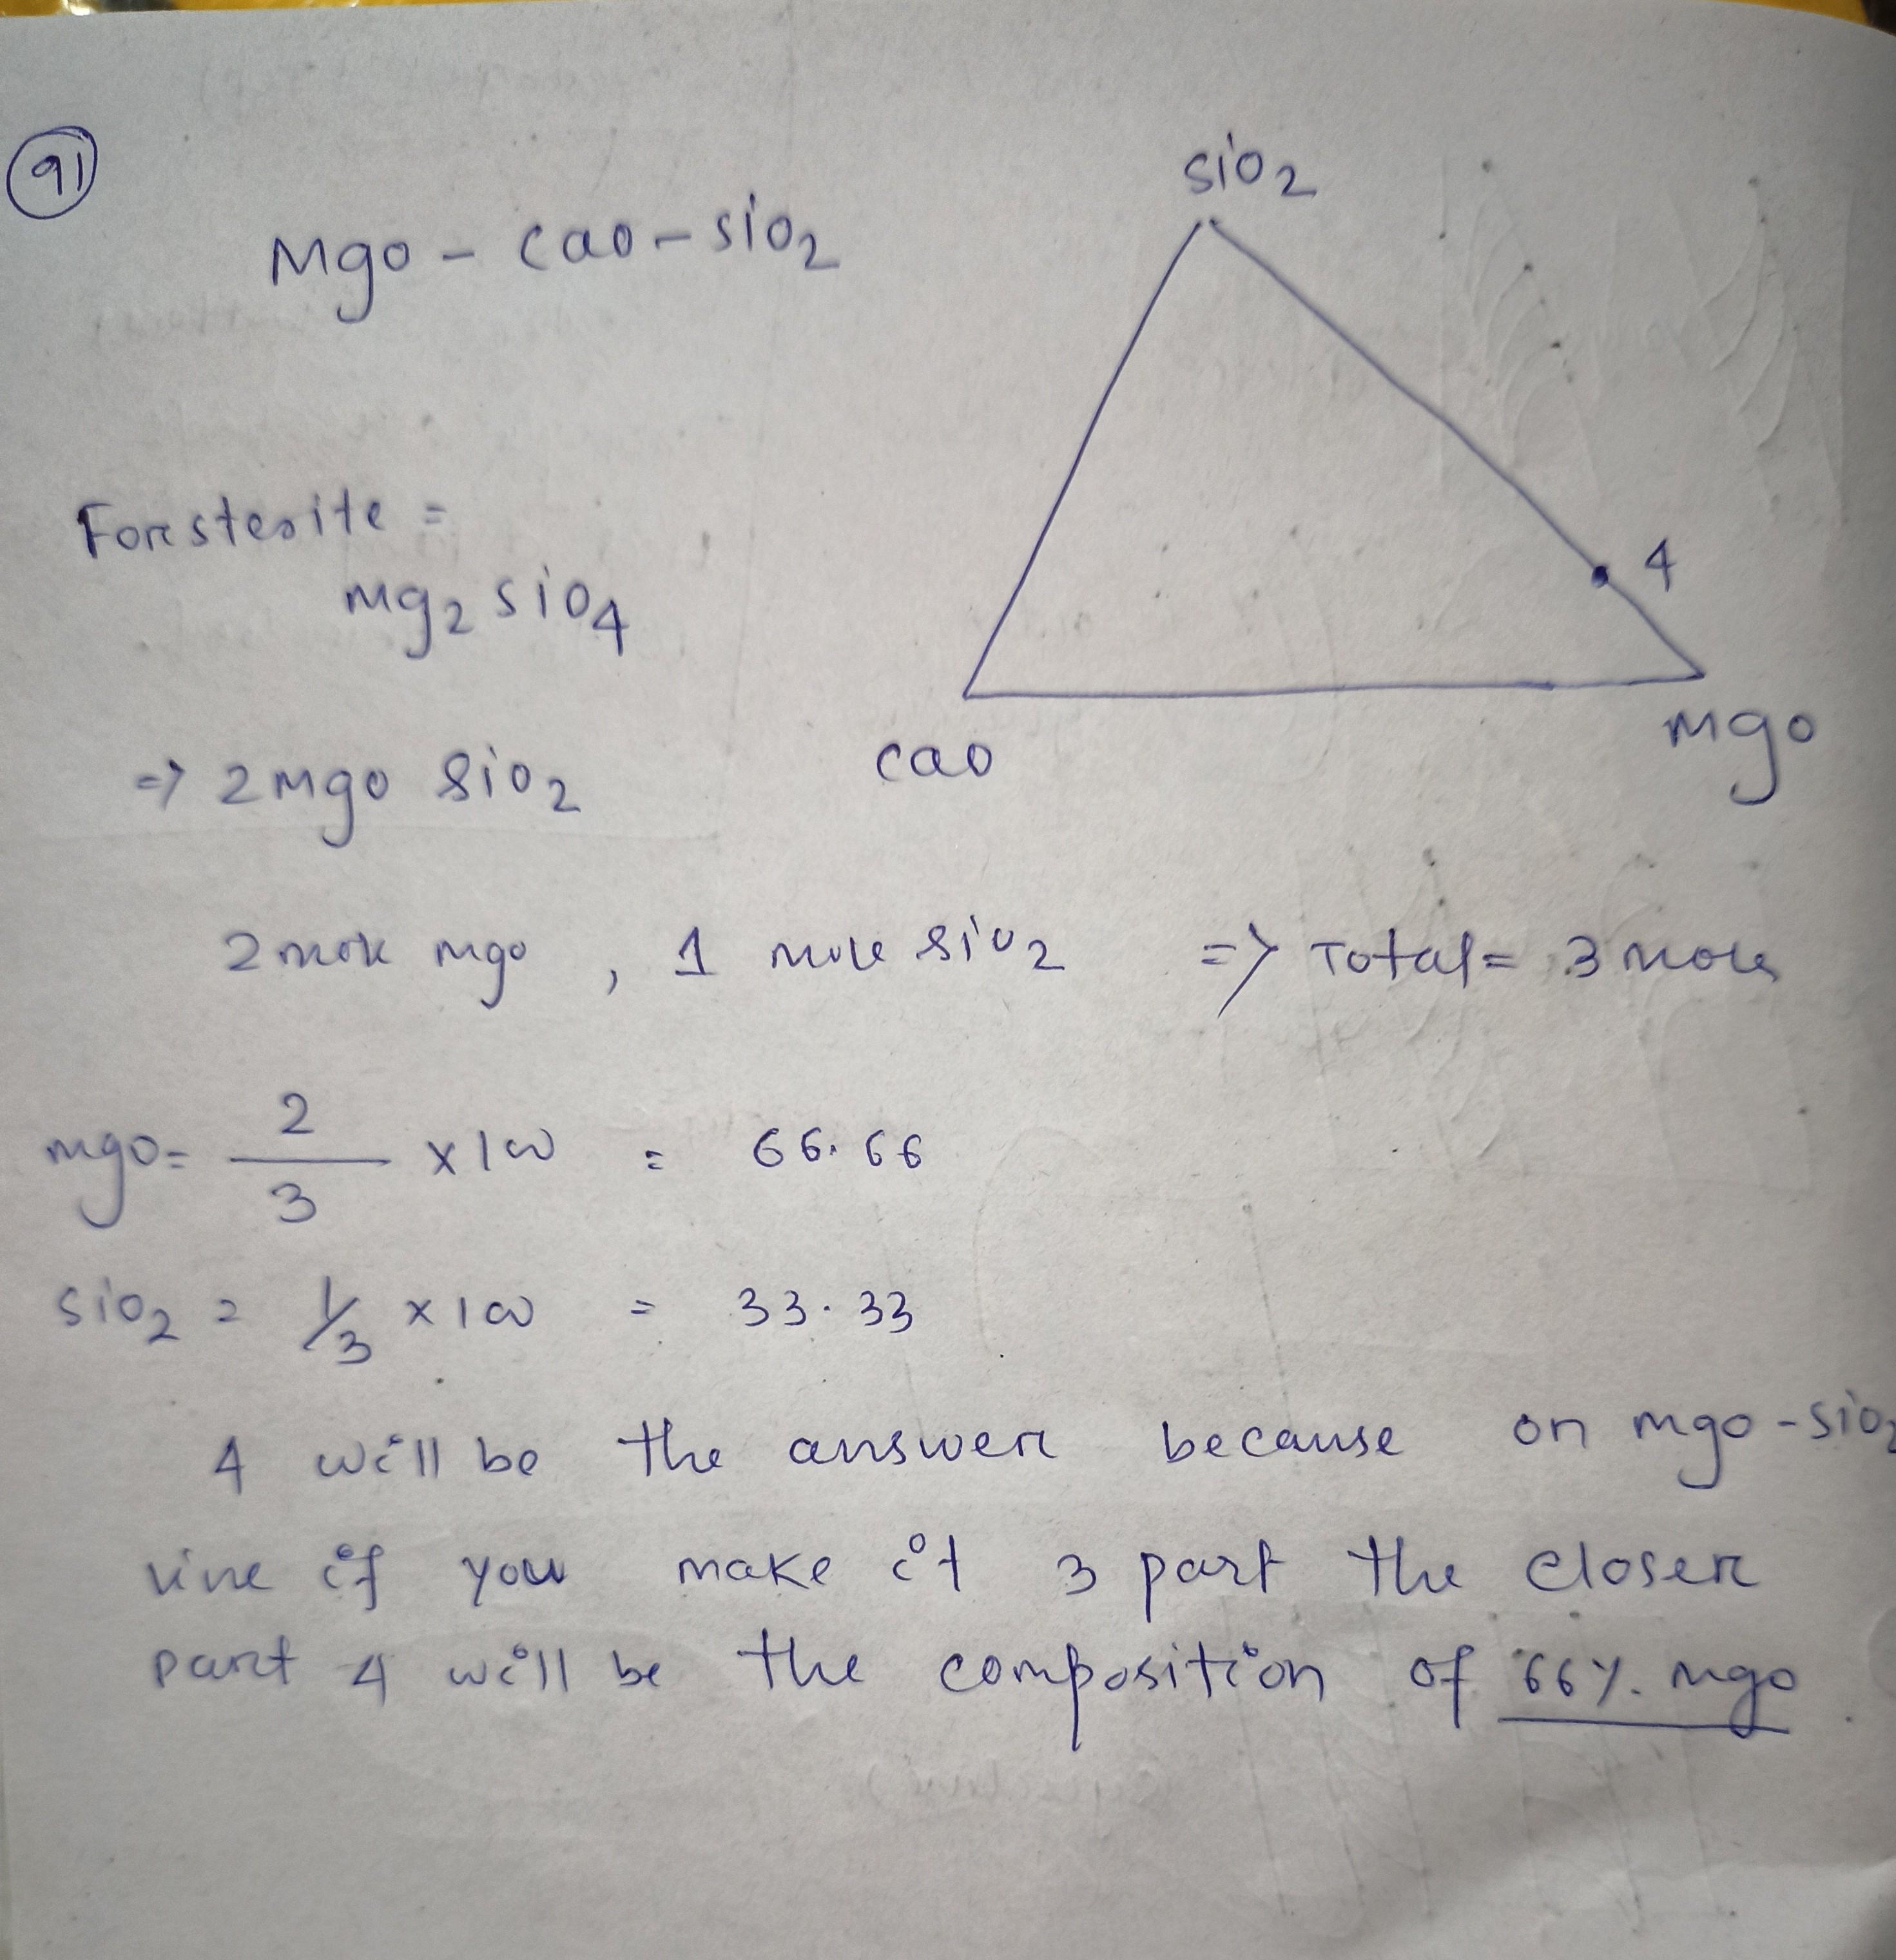 91
sio2
Mgo - cao - sio2
Forsterite =
mg2 sio4
4
cao
mgo
=> 2mgo sio2
2 mole mgo , 1 mole sio2 => Total = 3 moles
mgo = 2/3 x 100 = 66.66
sio2 = 1/3 x 100 = 33.33
4 will be the answer because on mgo - sio2
line if you make it 3 part the closer
part 4 will be the composition of 66% mgo